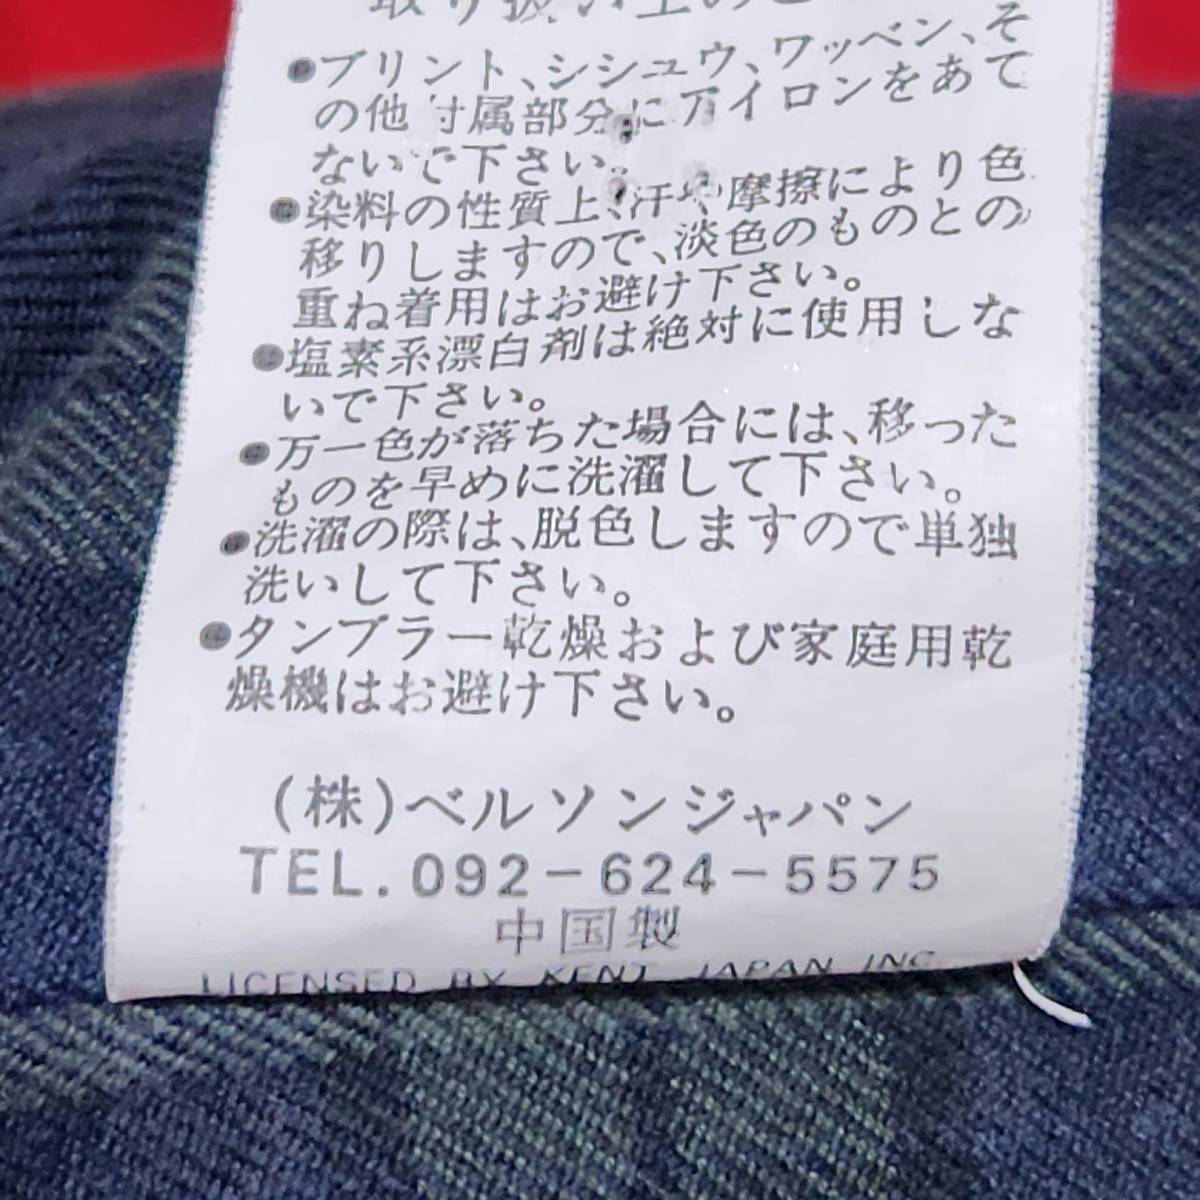 取り扱い上のご
●プリント、シシュウ、ワッペン、そ
の他付属部分にアイロンをあて
ないで下さい。
●染料の性質上、汗や摩擦により色
移りしますので、淡色のものとの
重ね着用はお避け下さい。
●塩素系漂白剤は絶対に使用しな
いで下さい。
●万一色が落ちた場合には、移った
ものを早めに洗濯して下さい。
●洗濯の際は、脱色しますので単独
洗いして下さい。
●タンブラー乾燥および家庭用乾
燥機はお避け下さい。
(株)ベルソンジャパン
TEL.092-624-5575
中国製
LICENSED BY KENT JAPAN INC.